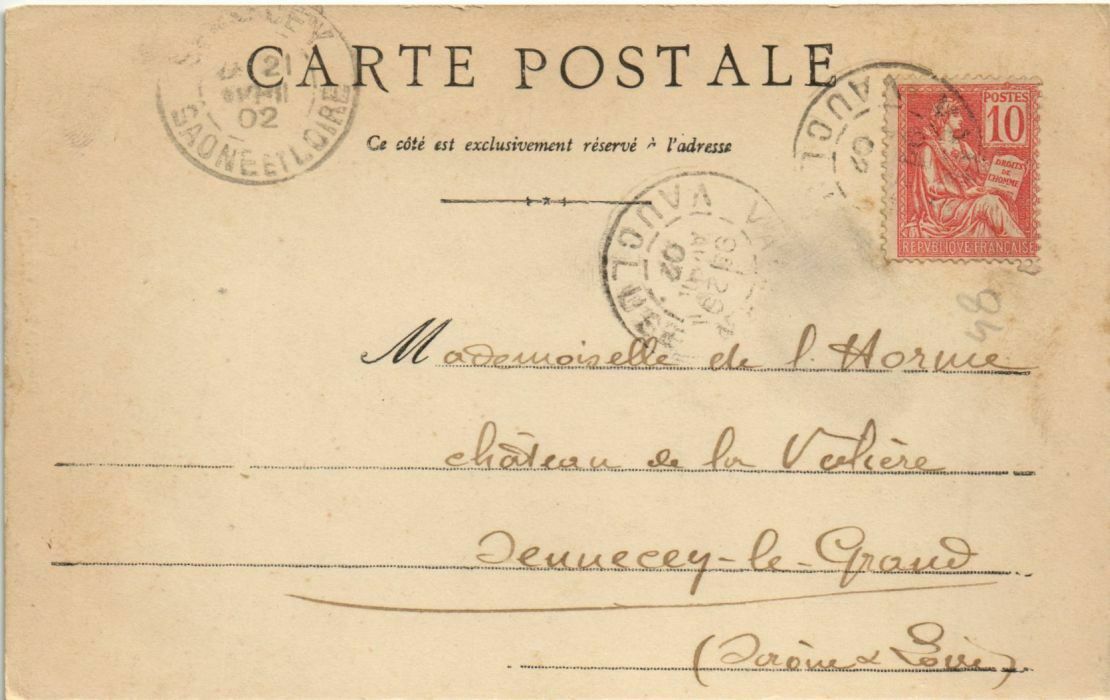 CARTE POSTALE
Ce côté est exclusivement réservé à l'adresse
21
AVRIL
02
SAONE ET LOIRE
VAUCLUSE
02
VAUCL
02
POSTES
10
DROITS
DE
L'HOMME
REPVBLIQVE FRANÇAISE
Mademoiselle de l'Horme
château de la Valière
Sennecey-le-Grand
(Saône & Loire)